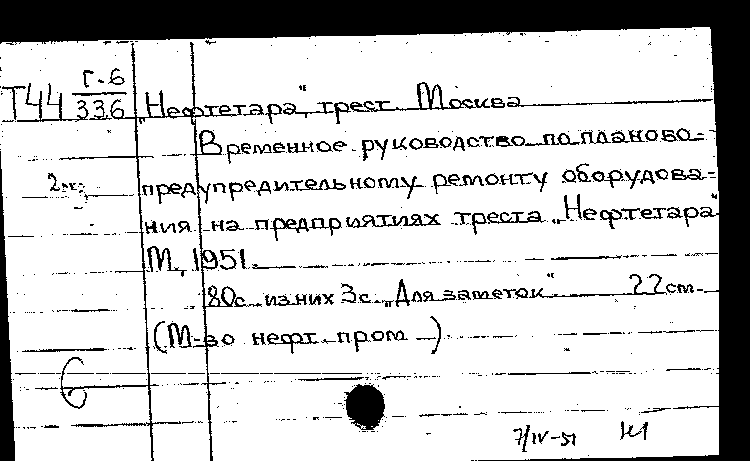 Т44 Г.-6
336
„Нефтетара", трест. Москва
Временное руководство по планово-
2эк;
предупредительному ремонту оборудова-
ния на предприятиях треста „Нефтетара"
М., 1951.
80с. из них 3с. „Для заметок" 22см.
(М-во нефт. пром.)
6
7/IV-51